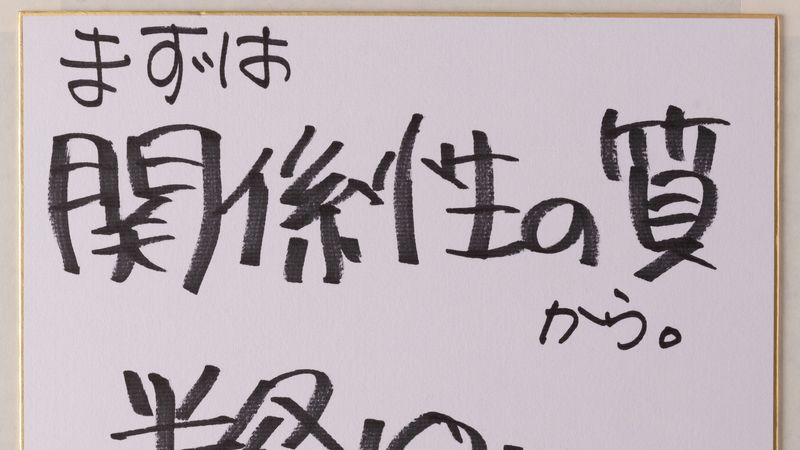 まずは
関係性の質
から。